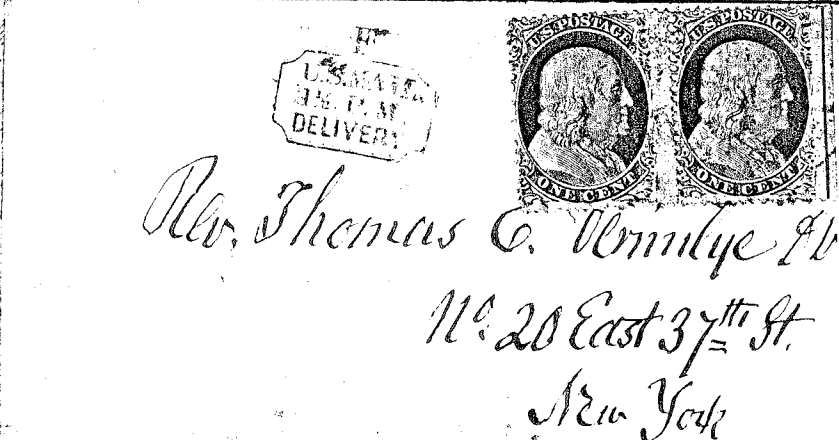 F
U.S. MAIL
P.M.
DELIVERY
U.S. POSTAGE
ONE CENT
U.S. POSTAGE
ONE CENT
Rev. Thomas E. Vermilye
No. 20 East 37th St.
New York